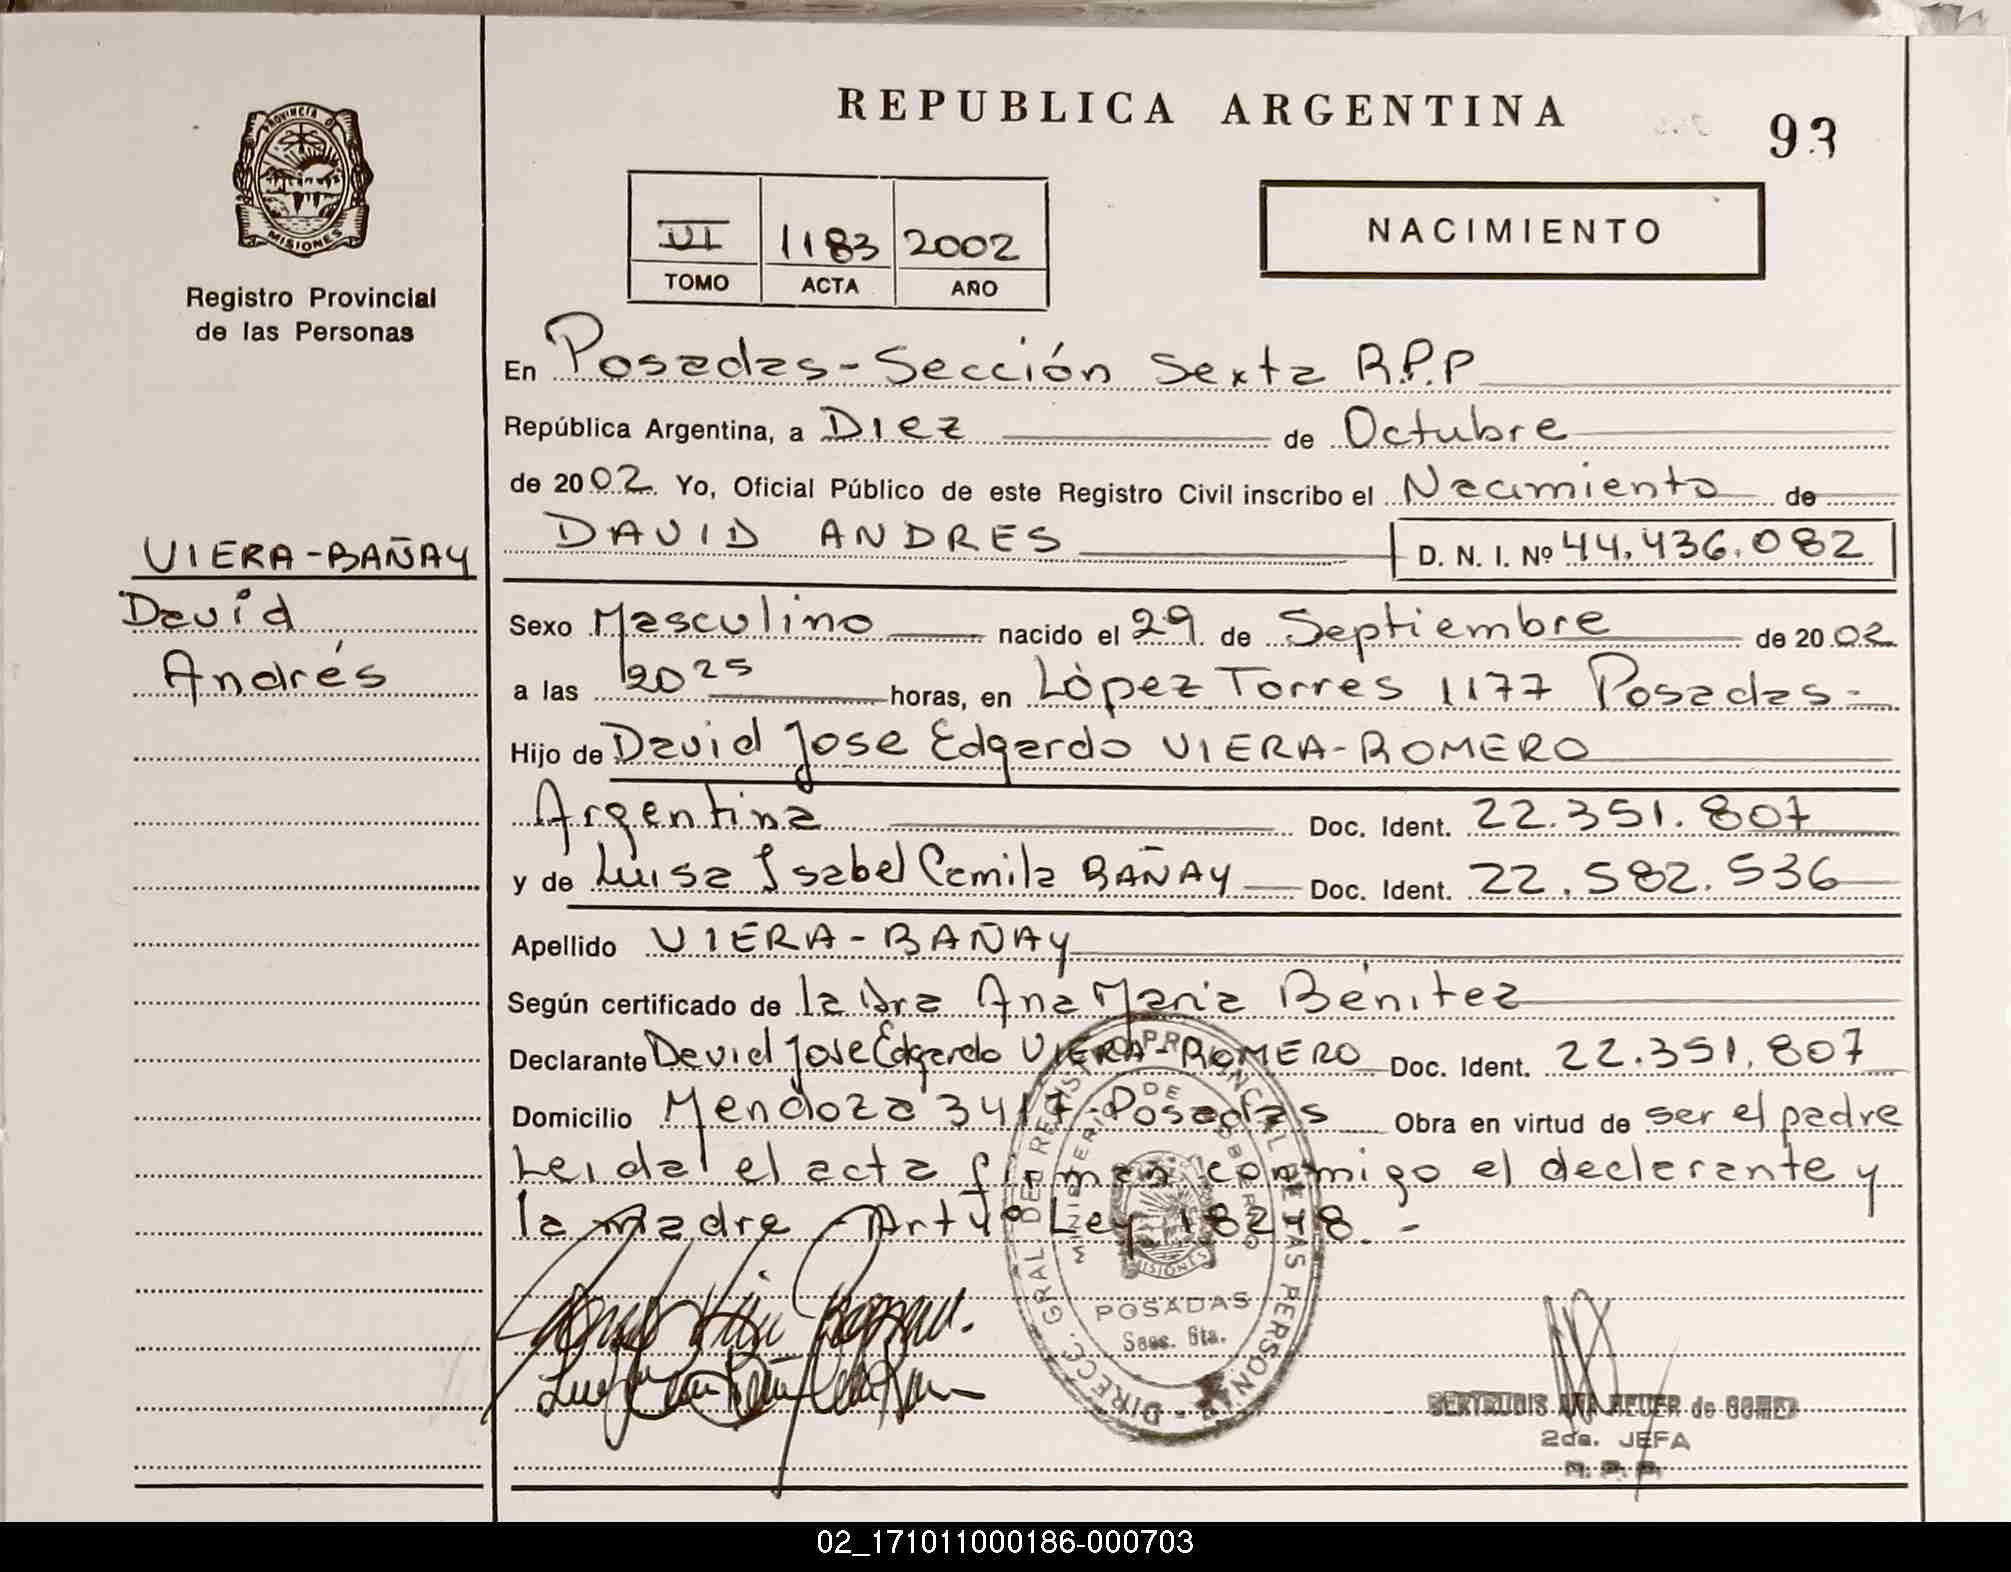 REPUBLICA ARGENTINA
93
PROVINCIA DE
MISIONES
Registro Provincial
de las Personas
VI 1183 2002
TOMO ACTA AÑO
NACIMIENTO
En Posadas-Sección Sexta R.P.P
República Argentina, a Diez de Octubre
de 2002. Yo, Oficial Público de este Registro Civil inscribo el Nacimiento de
DAVID ANDRES D. N. I. Nº 44.436.082
VIERA-BAÑAY
David
Andrés
Sexo Masculino nacido el 29 de Septiembre de 2002
a las 20 25 horas, en López Torres 1177 Posadas-
Hijo de David Jose Edgardo VIERA-ROMERO
Argentina Doc. Ident. 22.351.807
y de Luisa Isabel Camila BAÑAY Doc. Ident. 22.582.536
Apellido VIERA-BAÑAY
Según certificado de la Dra Ana Maria Bénitez
Declarante David Jose Edgardo VIERA-ROMERO Doc. Ident. 22.351.807
Domicilio Mendoza 3417-Posadas Obra en virtud de ser el padre
Leida el acta firman conmigo el declarante y
la madre Art 4º Ley 18248.-
DIRECC. GRAL DEL REGISTRO PROVINCIAL DE LAS PERSONAS
MINISTERIO DE GOBIERNO
MISIONES
POSADAS
Secc. 6ta.
GERTRUDIS ANA de GOMEZ
2da. JEFA
R. P. P.
02_171011000186-000703